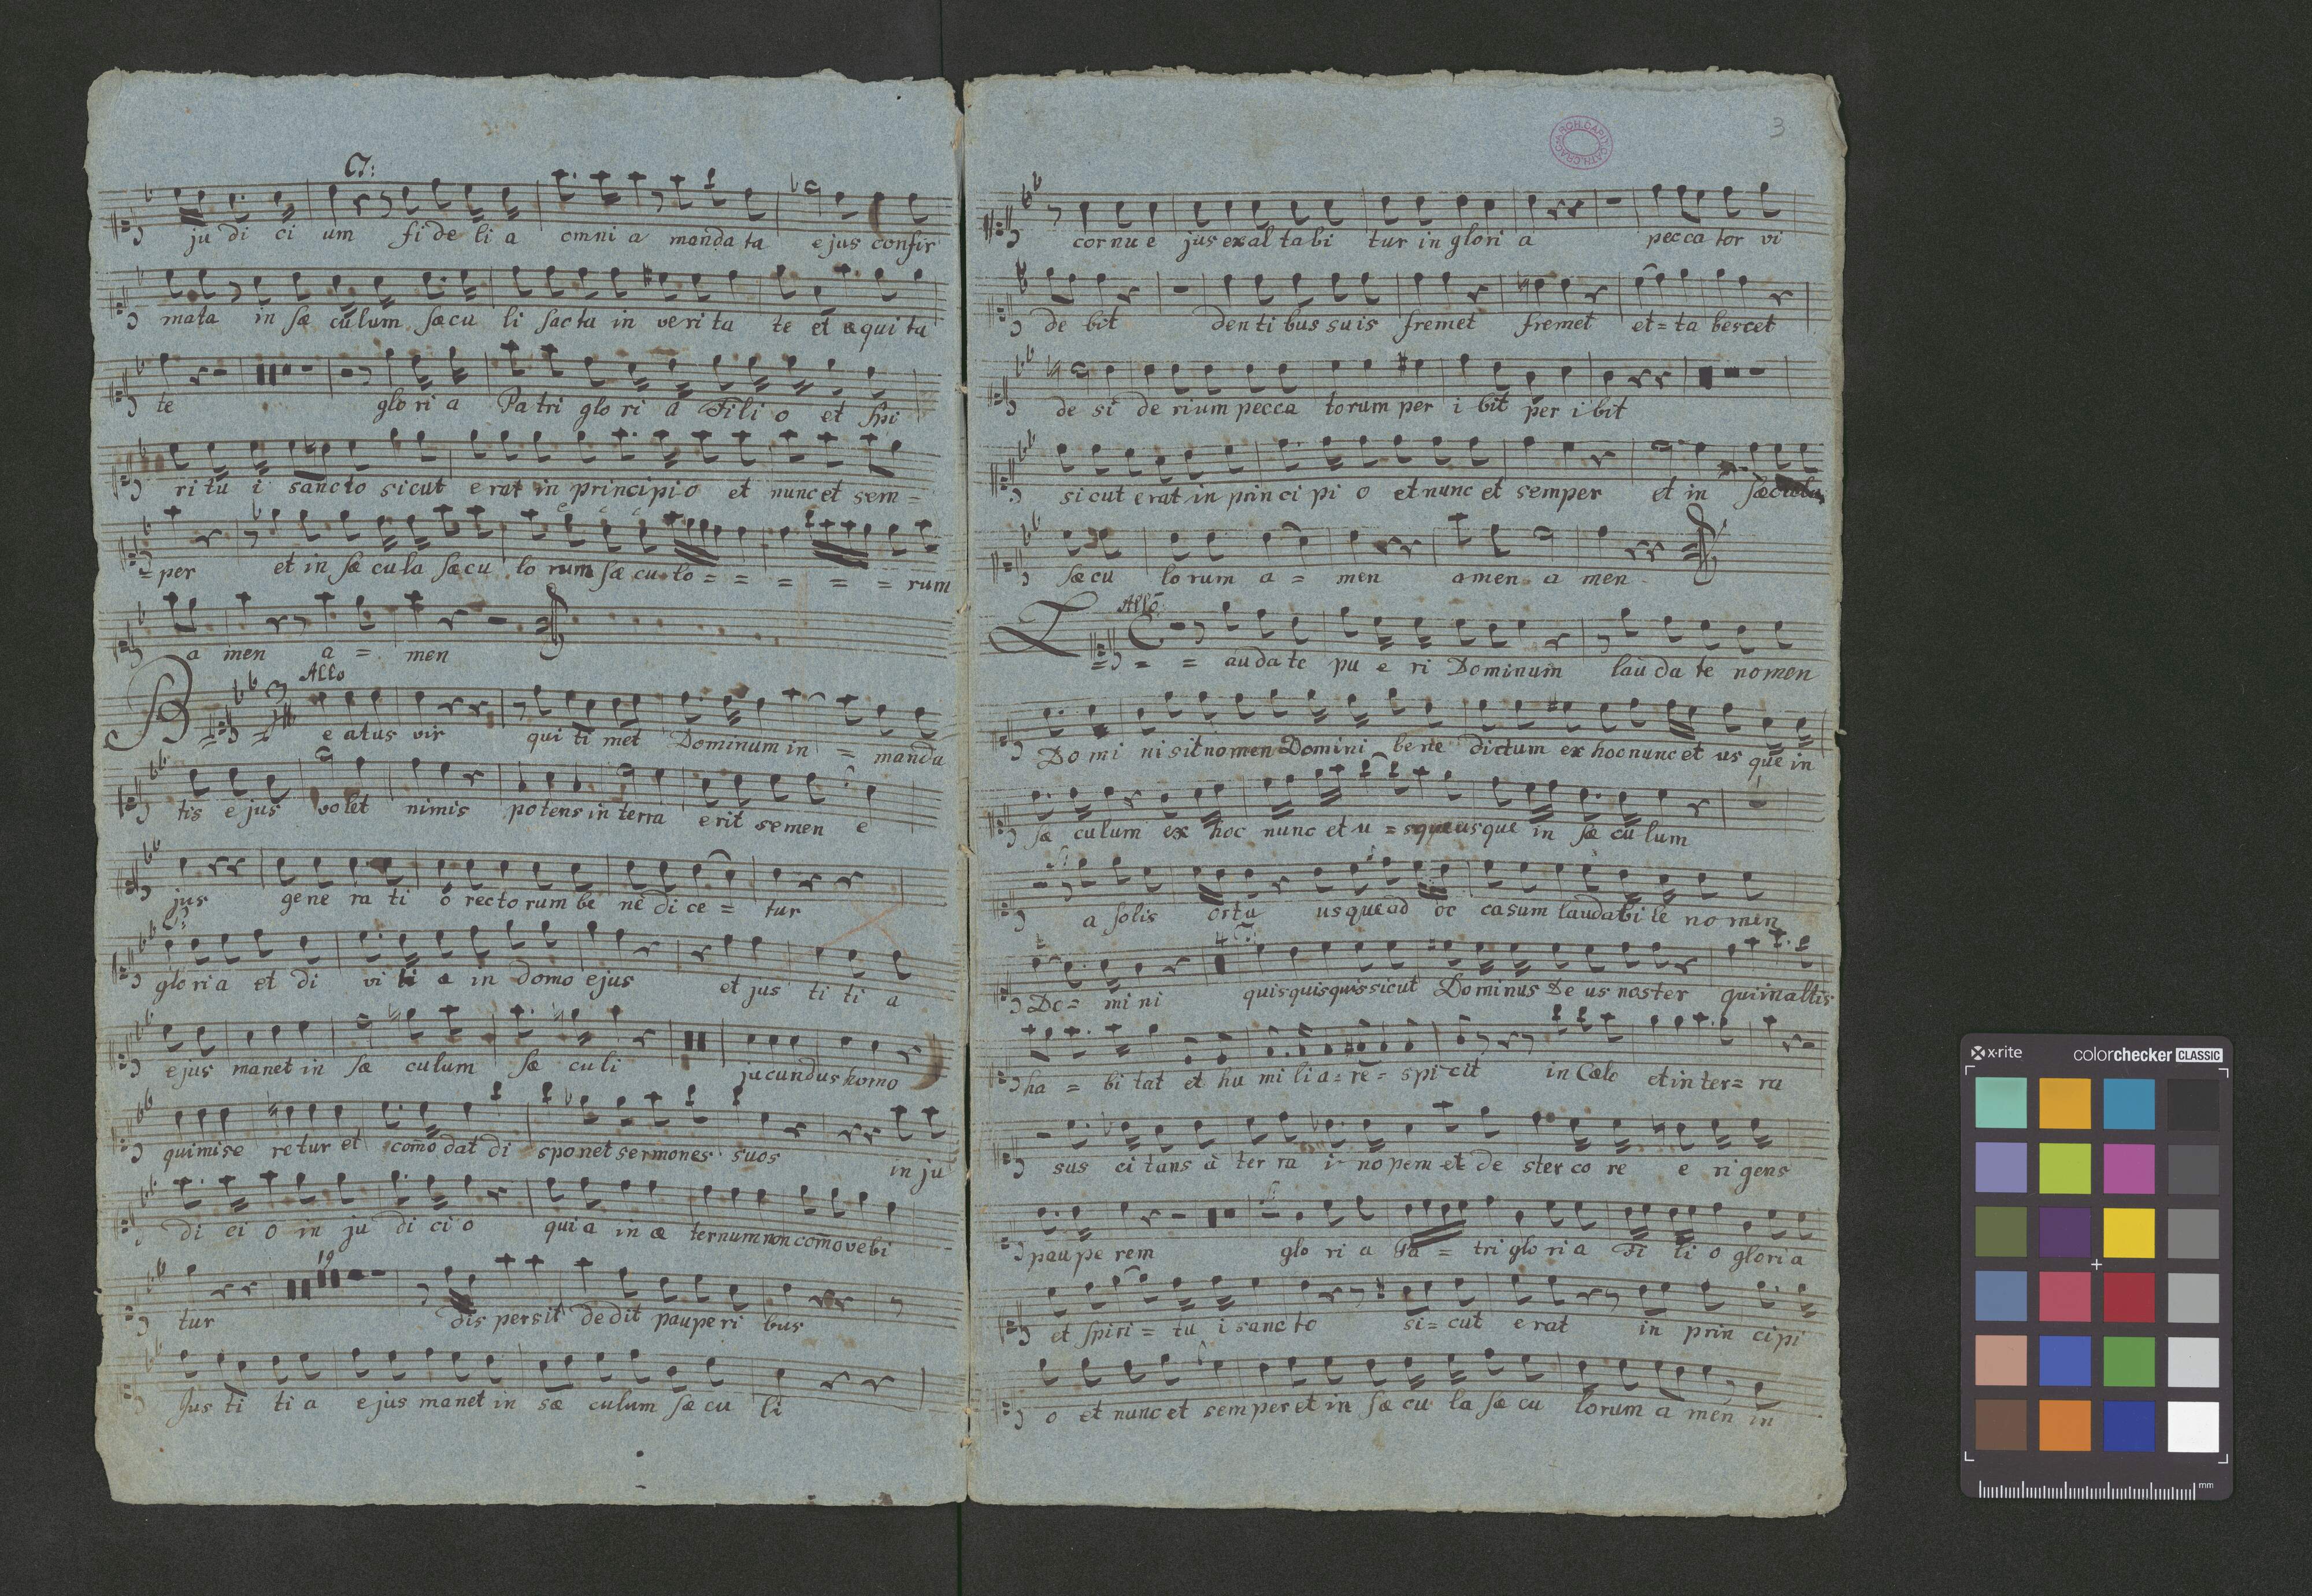 C:
ju di ci um fi de li a omni a manda ta ejus confir
mata in sæ culum sæcu li facta in veri ta te et æqui ta
te glo ri a Pa tri glo ri a Fi li o et Spi
ri tu i sancto sicut erat in principi o et nunc et sem =
= per et in sæ cu la sæcu lo rum sæ cu lo = = = = = rum
a men a = men
Allo
B e atus vir qui ti met Dominum in = manda
tis ejus volet nimis potens in terra erit semen e
jus gene ra ti o rectorum be ne di ce = tur
C:
gloria et di vi ti æ in domo ejus et jus ti ti a
ejus manet in sæ culum sæ culi jucundus homo
qui mise retur et com̄o dat di sponet sermones suos in ju
di ci o in ju di ci o quia in æ ternum non com̄ovebi
19
tur dis persit dedit pauperi bus
Jus ti ti a ejus manet in sæ culum sæ cu li
3
ARCH.CAPIT.CATH.CRAC.
cornu e jus exal tabi tur in glori a pecca tor vi
de bit denti bus suis fremet fremet et = ta bescet
de si de rium pecca torum per i bit per i bit
sicut erat in princi pi o et nunc et semper et in sæcula
sæcu lorum a = men amen a men
Allo
L = = audate pu e ri Dominum lauda te nomen
Do mi ni sit nomen Domini bene dictum ex hoc nunc et us que in
sæ culum ex hoc nunc et u = sque usque in sæ cu lum
a solis ortu usque ad oc casum laudabi le no men
4 C:
Do = mi ni quis quis quis sicut Dominus De us noster qui in altis
ha = bi tat et hu mi li a = re = spi cit in Cælo et in ter = ra
sus ci tans à ter ra i- nopem et de ster co re e ri gens
paupe rem glo ri a Pa = tri glo ri a Fi li o gloria
et Spiri = tu i sanc to si = cut erat in prin cipi
o et nunc et semper et in sæ cu la sæ cu lorum a men in
x·rite colorchecker CLASSIC
mm